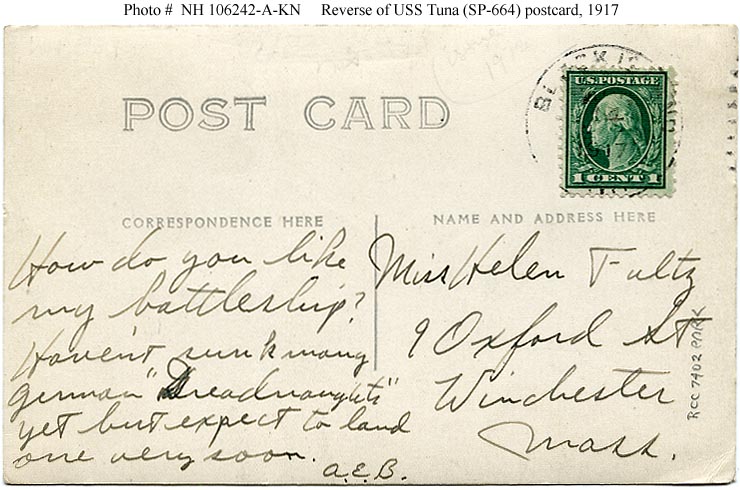 Photo # NH 106242-A-KN Reverse of USS Tuna (SP-664) postcard, 1917
POST CARD
BLOCK IS
U.S. POSTAGE
1 CENT 1
CORRESPONDENCE HERE
NAME AND ADDRESS HERE
How do you like
my battleship?
Haven't sunk many
german "Dreadnaughts"
yet but expect to land
one very soon.
a.E.B.
Miss Helen Fultz
9 Oxford St
Winchester
Mass.
RCC 7402 PARK